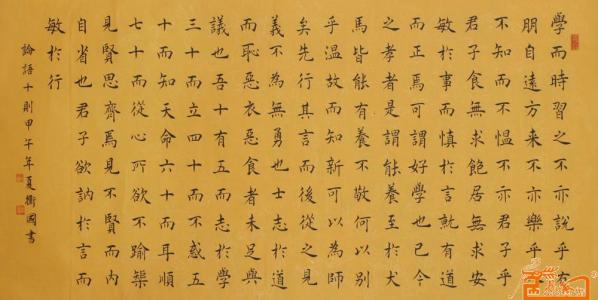 學而時習之不亦說乎有
朋自遠方來不亦樂乎人
不知而不慍不亦君子乎
君子食無求飽居無求安
敏於事而慎於言就有道
而正焉可謂好學也已今
之孝者是謂能養至於犬
馬皆能有養不敬何以別
乎溫故而知新可以為師
矣先行其言而後從之見
義不為無勇也士志於道
而恥惡衣惡食者未足與
議也吾十有五而志於學
三十而立四十而不惑五
十而知天命六十而耳順
七十而從心所欲不踰榘
見賢思齊焉見不賢而內
自省也君子欲訥於言而
敏於行
論語十則甲午年夏衛國書